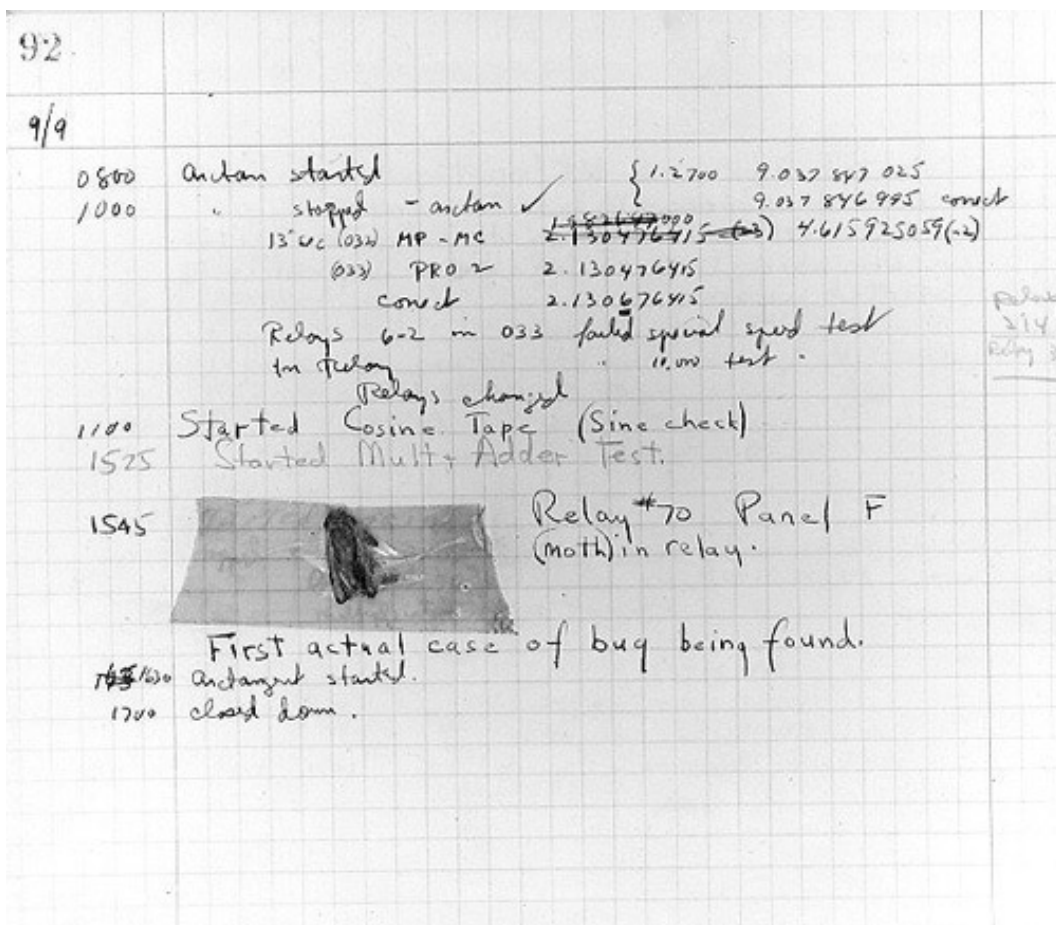 92
9/9
0800 arctan started { 1.2700 9.037 847 025
1000 " stopped - arctan ✓ 9.037 846 995 correct
13"uc (032) MP - MC 2.130476415 (-3) 4.615925059(-2)
(033) PRO 2 2.130476415
correct 2.130676415
Relays 6-2 in 033 failed special speed test
in relay " 10,000 test .
Relays changed
1100 Started Cosine Tape (Sine check)
1525 Started Mult + Adder Test.
1545 Relay #70 Panel F
(moth) in relay.
First actual case of bug being found.
1630 arctangent started.
1700 closed down.